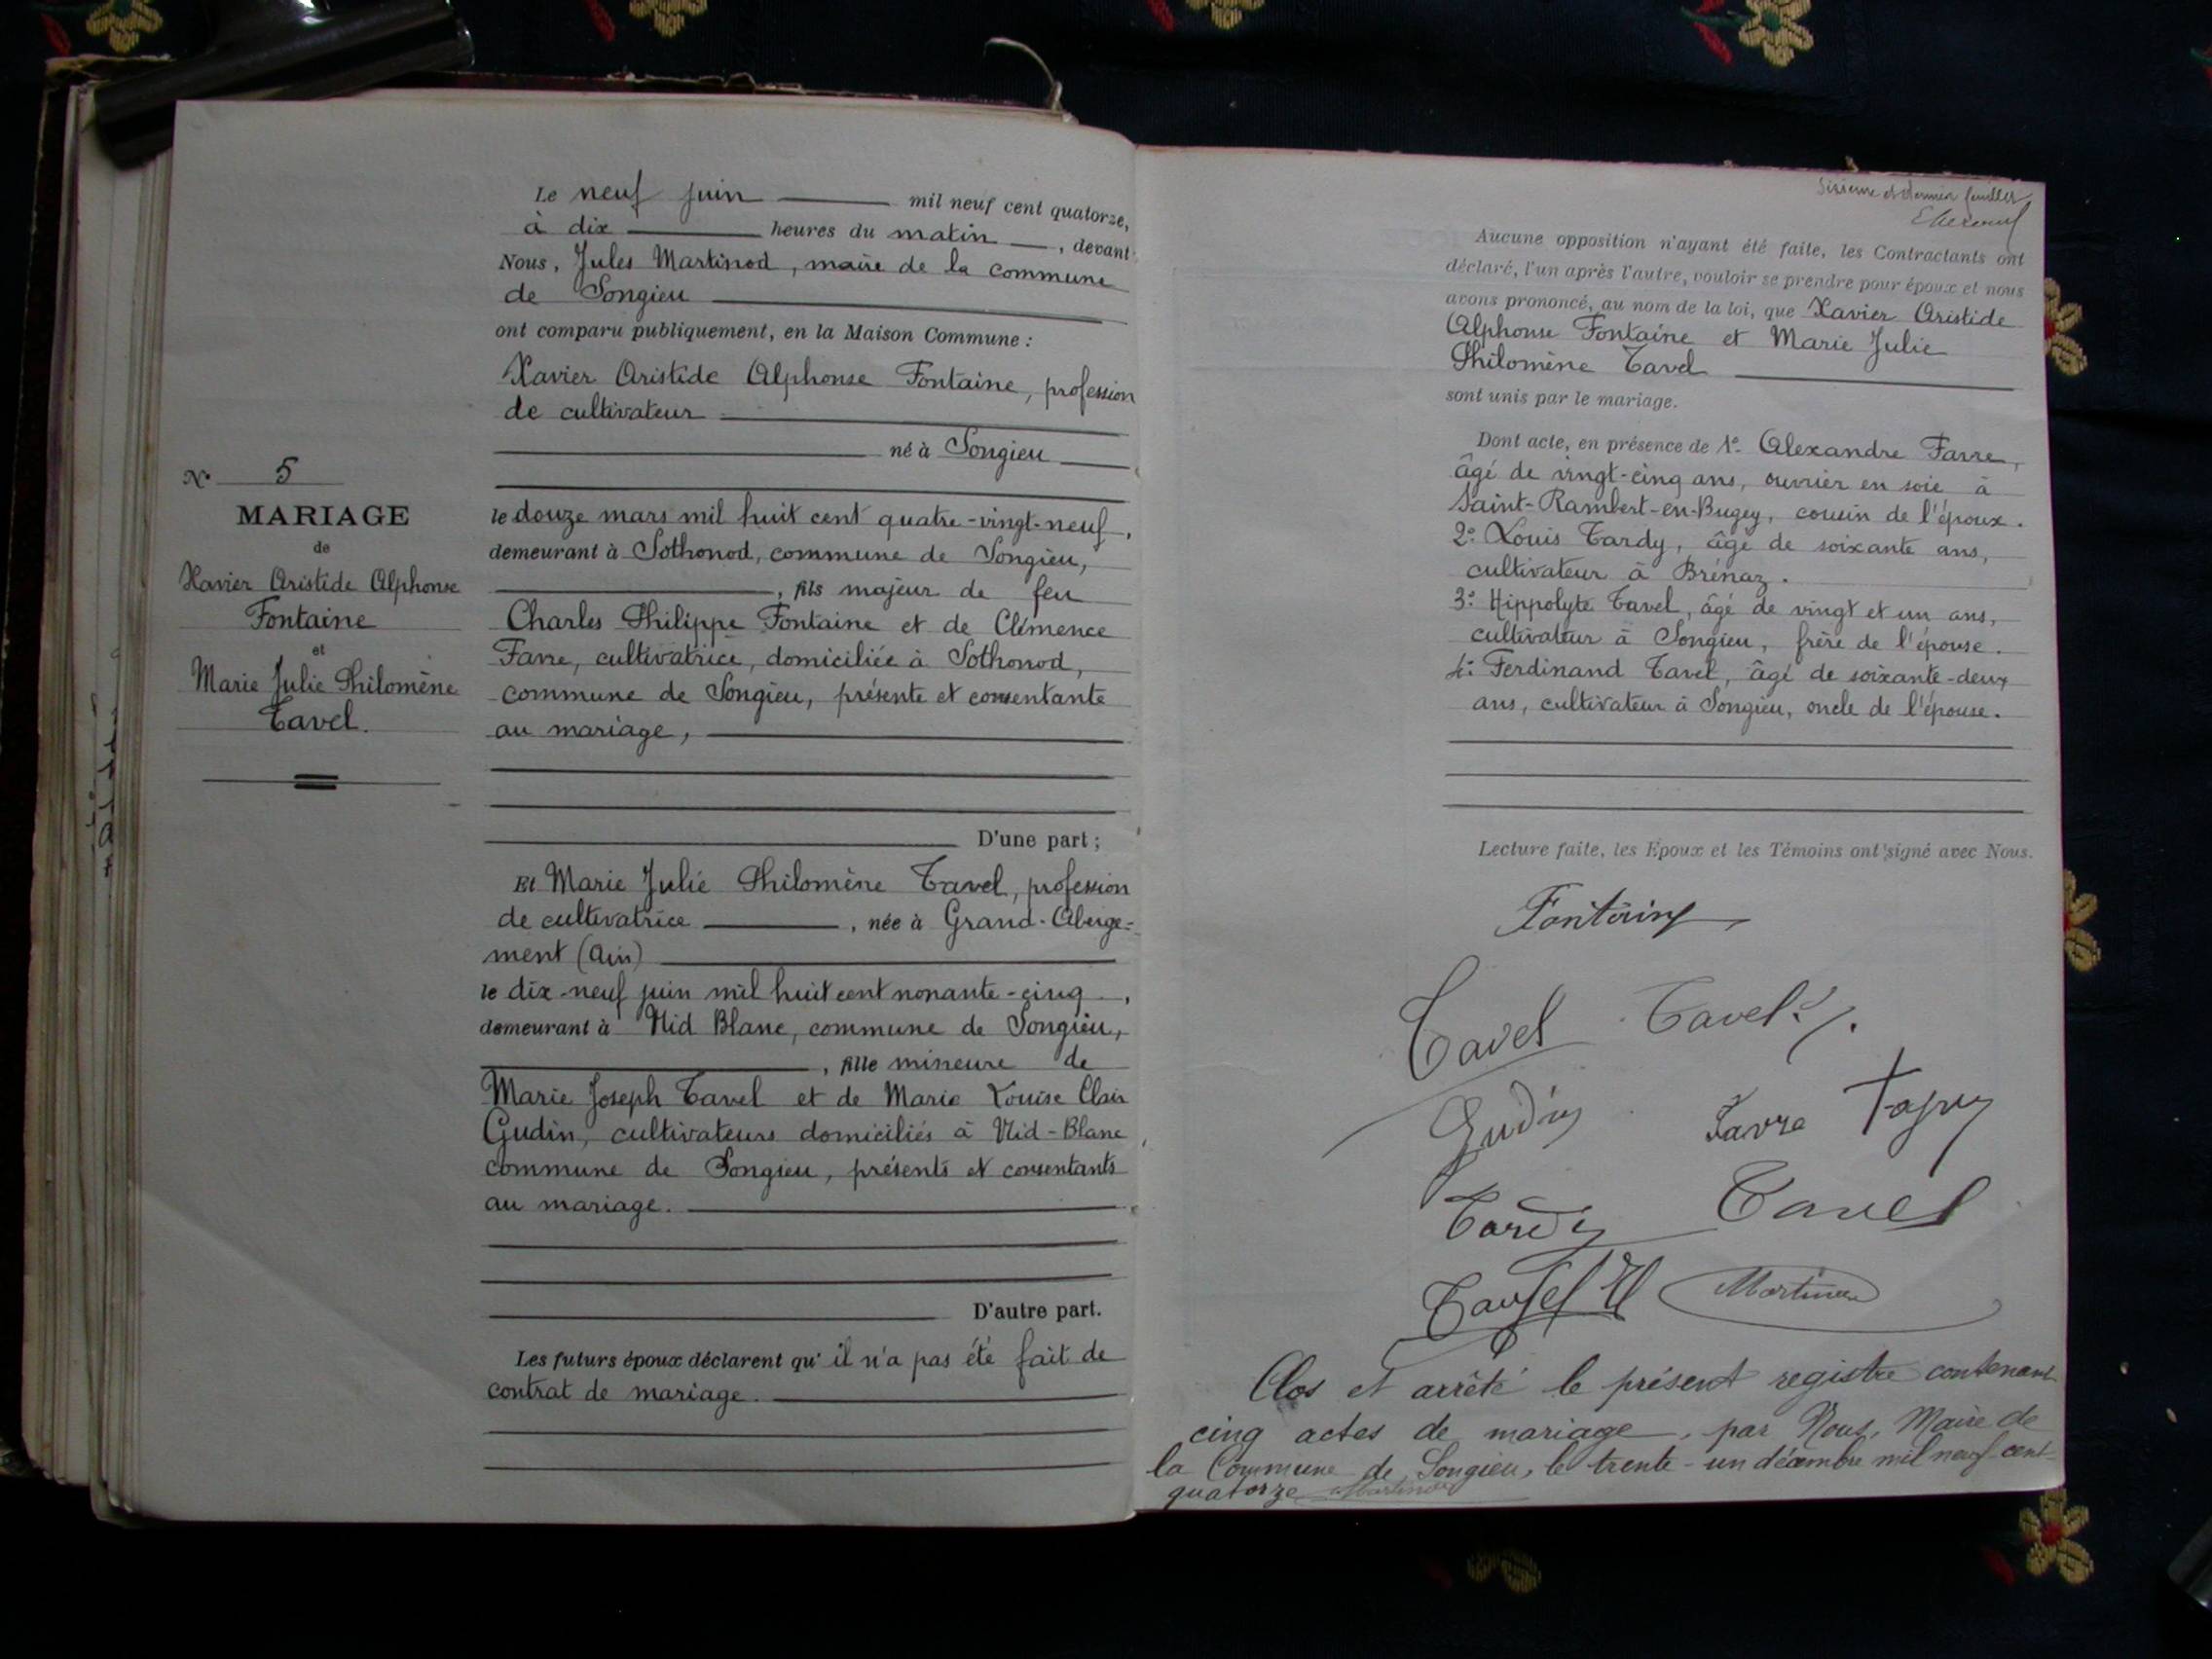 N° 5
MARIAGE
de
Xavier Aristide Alphonse
Fontaine
et
Marie Julie Philomène
Tavel.
Le neuf juin mil neuf cent quatorze,
à dix heures du matin, devant
Nous, Jules Martinod, maire de la commune
de Songieu
ont comparu publiquement, en la Maison Commune :
Xavier Aristide Alphonse Fontaine, profession
de cultivateur
né à Songieu
le douze mars mil huit cent quatre-vingt-neuf,
demeurant à Sothonod, commune de Songieu,
, fils majeur de feu
Charles Philippe Fontaine et de Clémence
Favre, cultivatrice, domiciliée à Sothonod,
commune de Songieu, présente et consentante
au mariage,
D'une part ;
Et Marie Julie Philomène Tavel, profession
de cultivatrice, née à Grand-Aberge=
ment (Ain)
le dix-neuf juin mil huit cent nonante-cinq,
demeurant à Nid Blanc, commune de Songieu,
, fille mineure de
Marie Joseph Tavel et de Marie Louise Clair
Gudin, cultivateurs domiciliés à Nid-Blanc
commune de Songieu, présents et consentants
au mariage.
D'autre part.
Les futurs époux déclarent qu'il n'a pas été fait de
contrat de mariage.
Sixième et dernier feuillet
Aucune opposition n'ayant été faite, les Contractants ont
déclaré, l'un après l'autre, vouloir se prendre pour époux et nous
avons prononcé, au nom de la loi, que Xavier Aristide
Alphonse Fontaine et Marie Julie
Philomène Tavel
sont unis par le mariage.
Dont acte, en présence de 1° Alexandre Favre,
âgé de vingt-cinq ans, ouvrier en soie à
Saint-Rambert-en-Bugey, cousin de l'époux.
2° Louis Tardy, âgé de soixante ans,
cultivateur à Brénaz.
3° Hippolyte Tavel, âgé de vingt et un ans,
cultivateur à Songieu, frère de l'épouse.
4° Ferdinand Tavel, âgé de soixante-deux
ans, cultivateur à Songieu, oncle de l'épouse.
Lecture faite, les Epoux et les Témoins ont signé avec Nous.
Fontaine
Tavel Tavel
Gudin Favre
Tardy Tavel
Tavel H Martinod
Clos et arrêté le présent registre contenant
cinq actes de mariage, par Nous, Maire de
la Commune de Songieu, le trente-un décembre mil neuf cent
quatorze Martinod